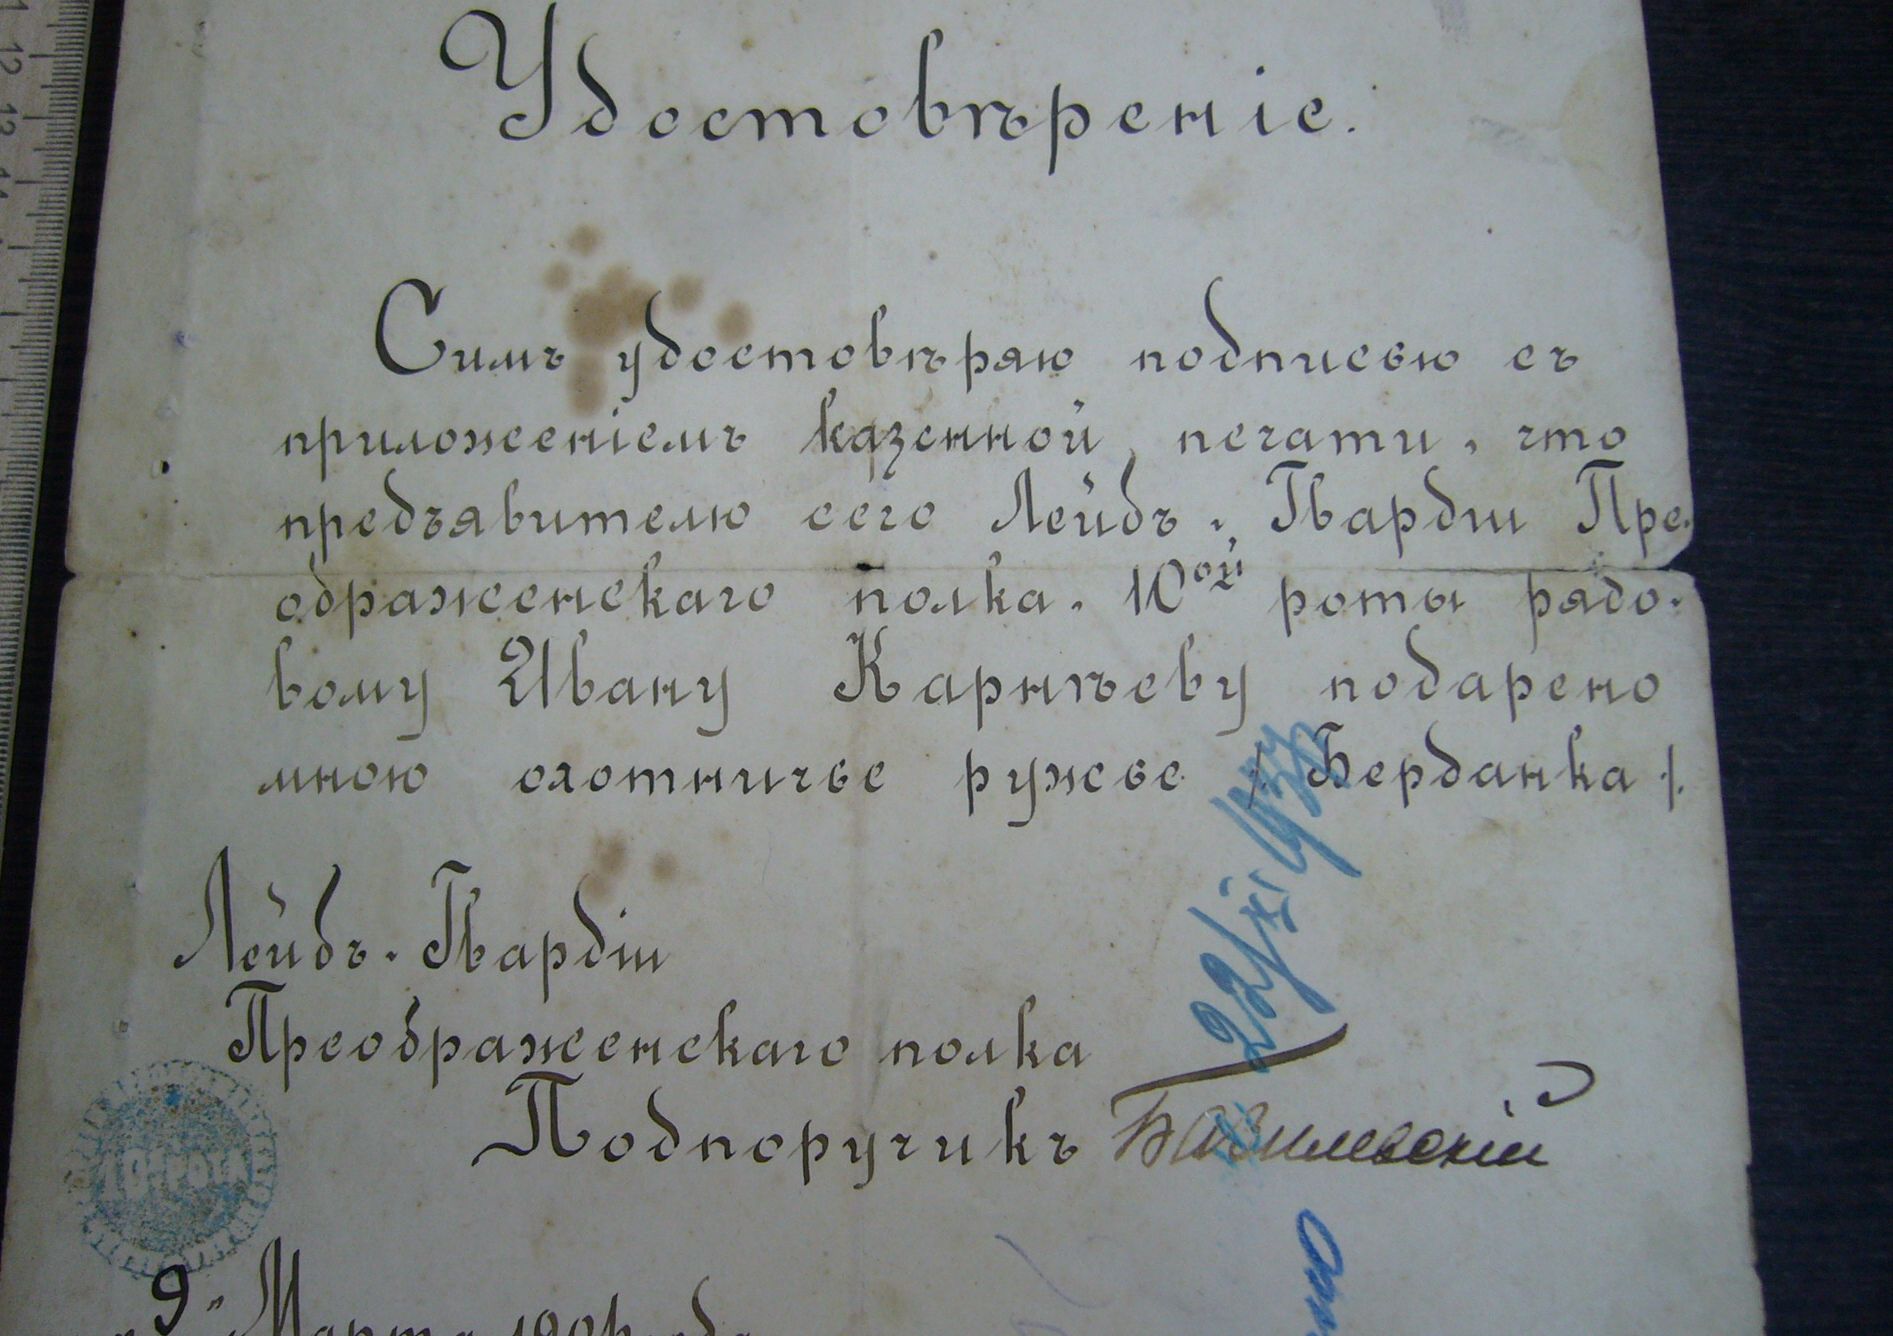 Удостовѣреніе.
Симъ удостовѣряю подписью съ
приложеніемъ казенной печати, что
предъявителю сего Лейбъ-Гвардіи Пре-
ображенскаго полка. 10ой роты рядо-
вому Ивану Карнѣеву подарено
мною охотничье ружье /. Берданка ./.
Лейбъ-Гвардіи
Преображенскаго полка
Подпоручикъ Базилевскій
10 РОТА
"9" Марта